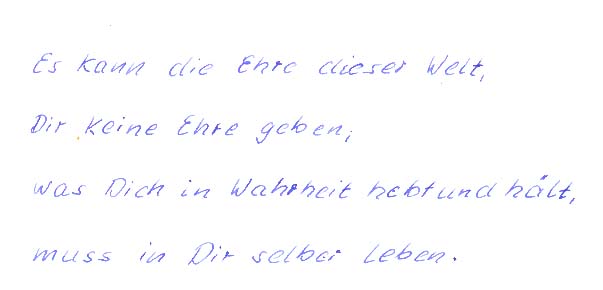 Es kann die Ehre dieser Welt,
Dir keine Ehre geben,
was Dich in Wahrheit hebt und hält,
muss in Dir selber leben.